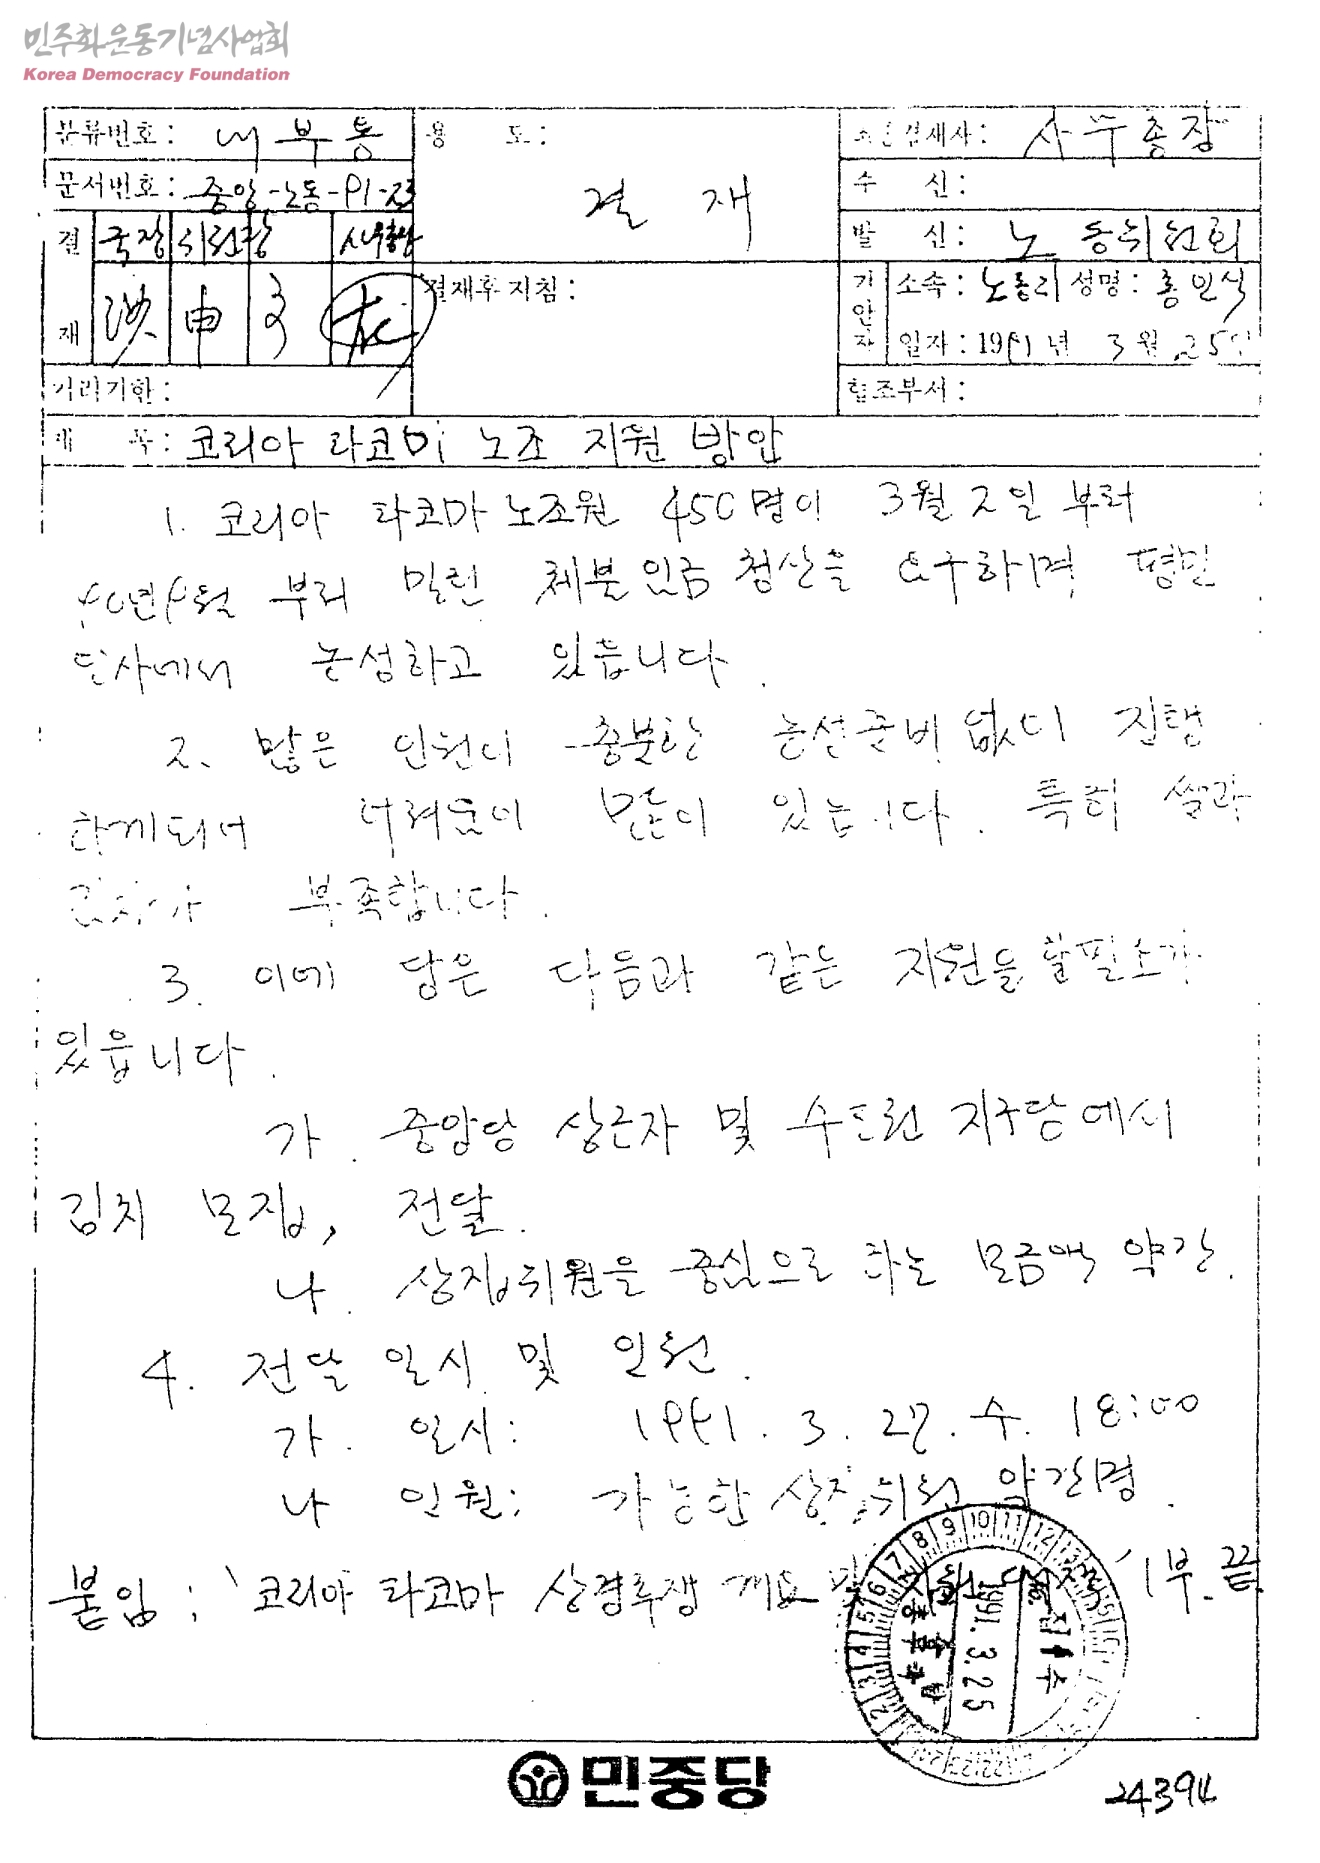 민주화운동기념사업회
Korea Democracy Foundation
분류번호: 내부통
용 도:
결재
최종결재사: 사무총장
문서번호: 중앙-노동-91-23
수 신:
결재
국장 위원장 사무총장
발 신: 노동위원회
申
결재후 지침:
기안자
소속: 노동위 성명: 홍인식
일자: 1991년 3월 25일
처리기한:
협조부서:
제 목: 코리아 타코마 노조 지원 방안
1. 코리아 타코마 노조원 450명이 3월 2일 부터
90년 9월 부터 밀린 체불임금 청산을 요구하며 평민
당사에서 농성하고 있읍니다.
2. 많은 인원이 충분한 농성준비 없이 진행
하게되어 어려움이 많이 있읍니다. 특히 쌀과
김치가 부족합니다.
3. 이에 당은 다음과 같은 지원을 할 필요가
있읍니다.
가. 중앙당 상근자 및 수도권 지구당에서
김치 모집, 전달.
나. 상집위원을 중심으로 하는 모금액 약간.
4. 전달 일시 및 인원.
가. 일시: 1991. 3. 27. 수. 18:00
나 인원: 가능한 상집위원 약간명.
붙임: '코리아 타코마 상경투쟁 개요 및 1부. 끝
접수
1991. 3. 25
민중당
24394